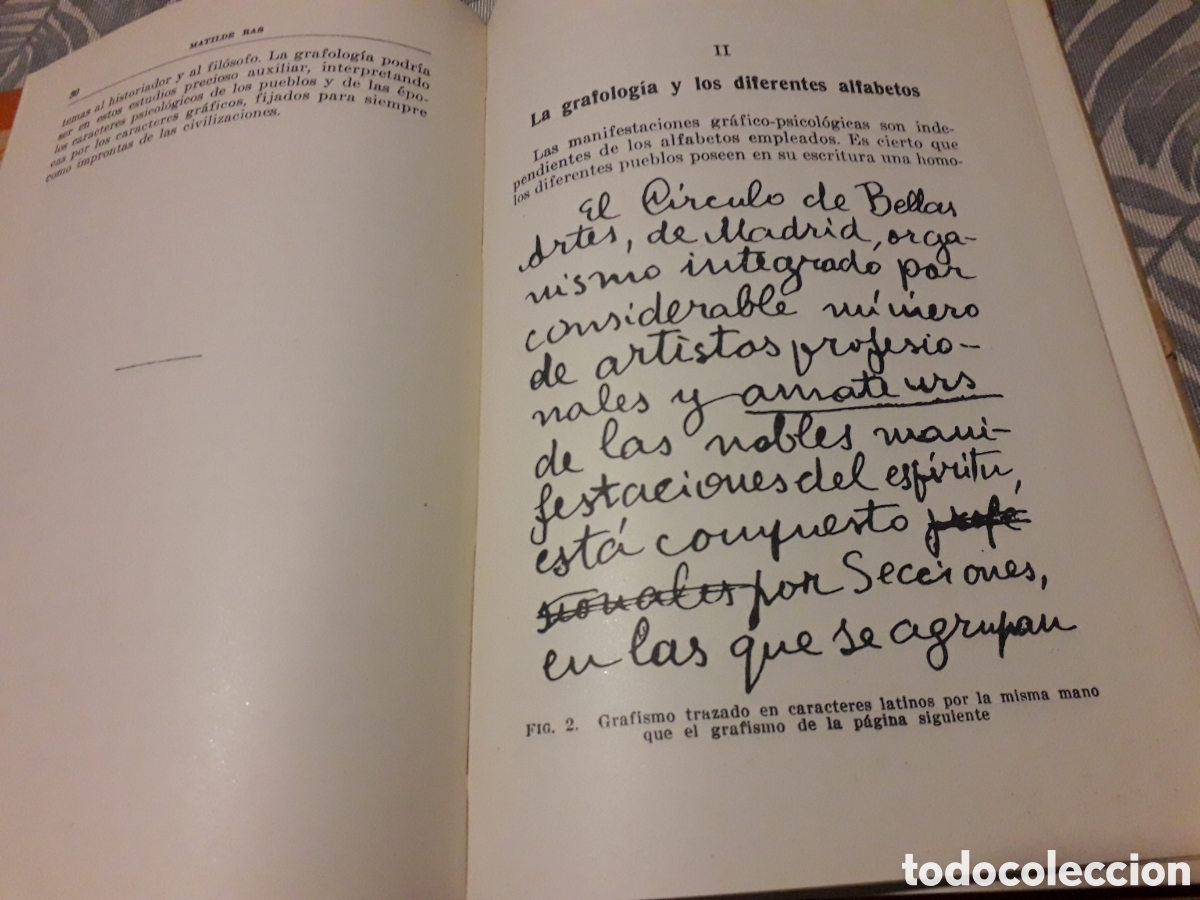 MATILDE RAS
30
temas al historiador y al filósofo. La grafología podría
ser en estos estudios precioso auxiliar, interpretando
los caracteres psicológicos de los pueblos y de las épo-
cas por los caracteres gráficos, fijados para siempre
como improntas de las civilizaciones.
II
La grafología y los diferentes alfabetos
Las manifestaciones gráfico-psicológicas son inde-
pendientes de los alfabetos empleados. Es cierto que
los diferentes pueblos poseen en su escritura una homo-
El Círculo de Bellas
Artes, de Madrid, orga-
nismo integrado por
considerable número
de artistas profesio-
nales y amateurs
de las nobles mani-
festaciones del espíritu,
está compuesto profe
sionales por Secciones,
en las que se agrupan
FIG. 2. Grafismo trazado en caracteres latinos por la misma mano
que el grafismo de la página siguiente
todocoleccion